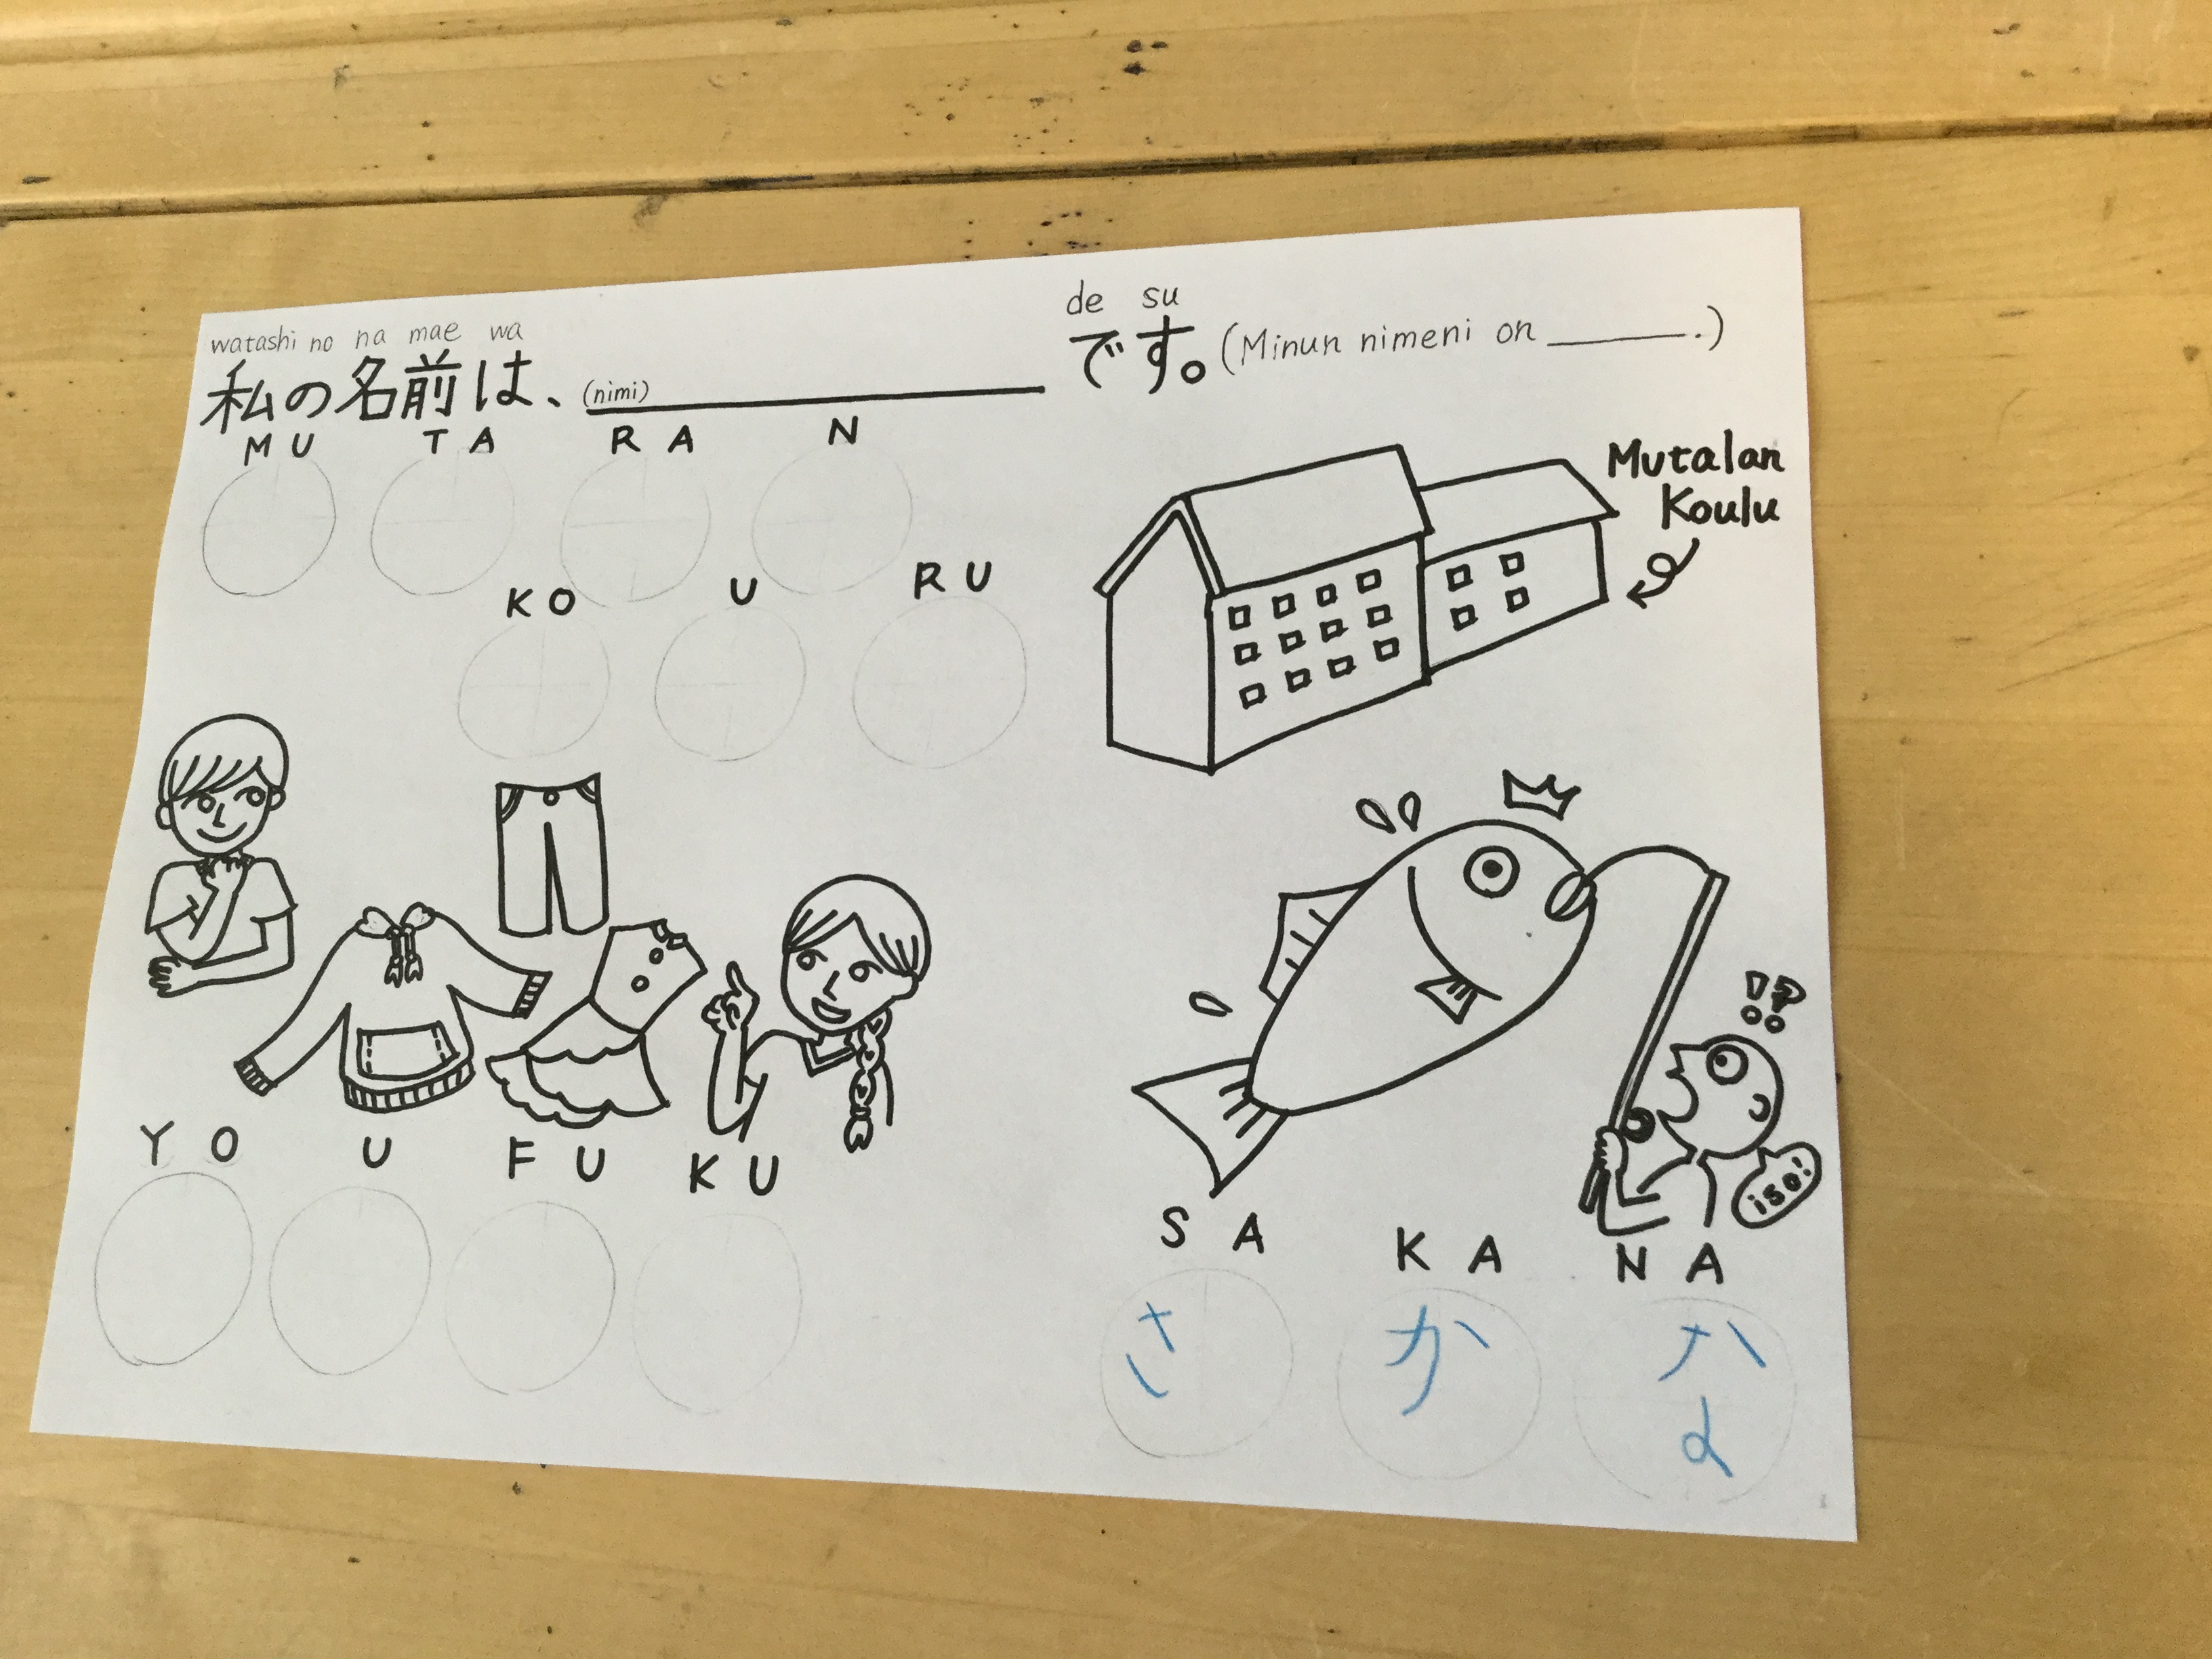 watashi no na mae wa
de su
私の名前は、(nimi)
です。(Minun nimeni on ______.)
MU TA RA N
Mutalan
Koulu
KO U RU
!?
iso!
YO U FU KU
SA KA NA
さ か な